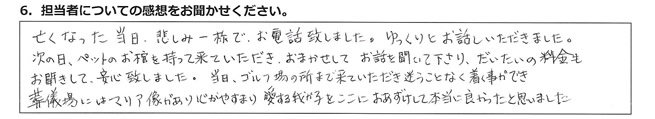 6. 担当者についての感想をお聞かせください。
亡くなった当日、悲しみ一杯で、お電話致しました。ゆっくりとお話しいただきました。
次の日、ペットのお棺を持って来ていただき、おまかせして お話を聞いて下さり、だいたいの料金も
お聞きして、安心致しました。当日、ゴルフ場の所まで来ていただき迷うことなく着く事ができ
葬儀場にはマリア像があり心がやすまり 愛する我が子をここにおあずけして本当に良かったと思いました